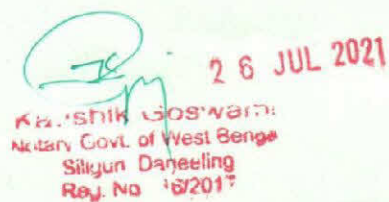 26 JUL 2021
Kaushik Goswami
Notary Govt. of West Benga
Siliguri Darjeeling
Reg. No 16/201